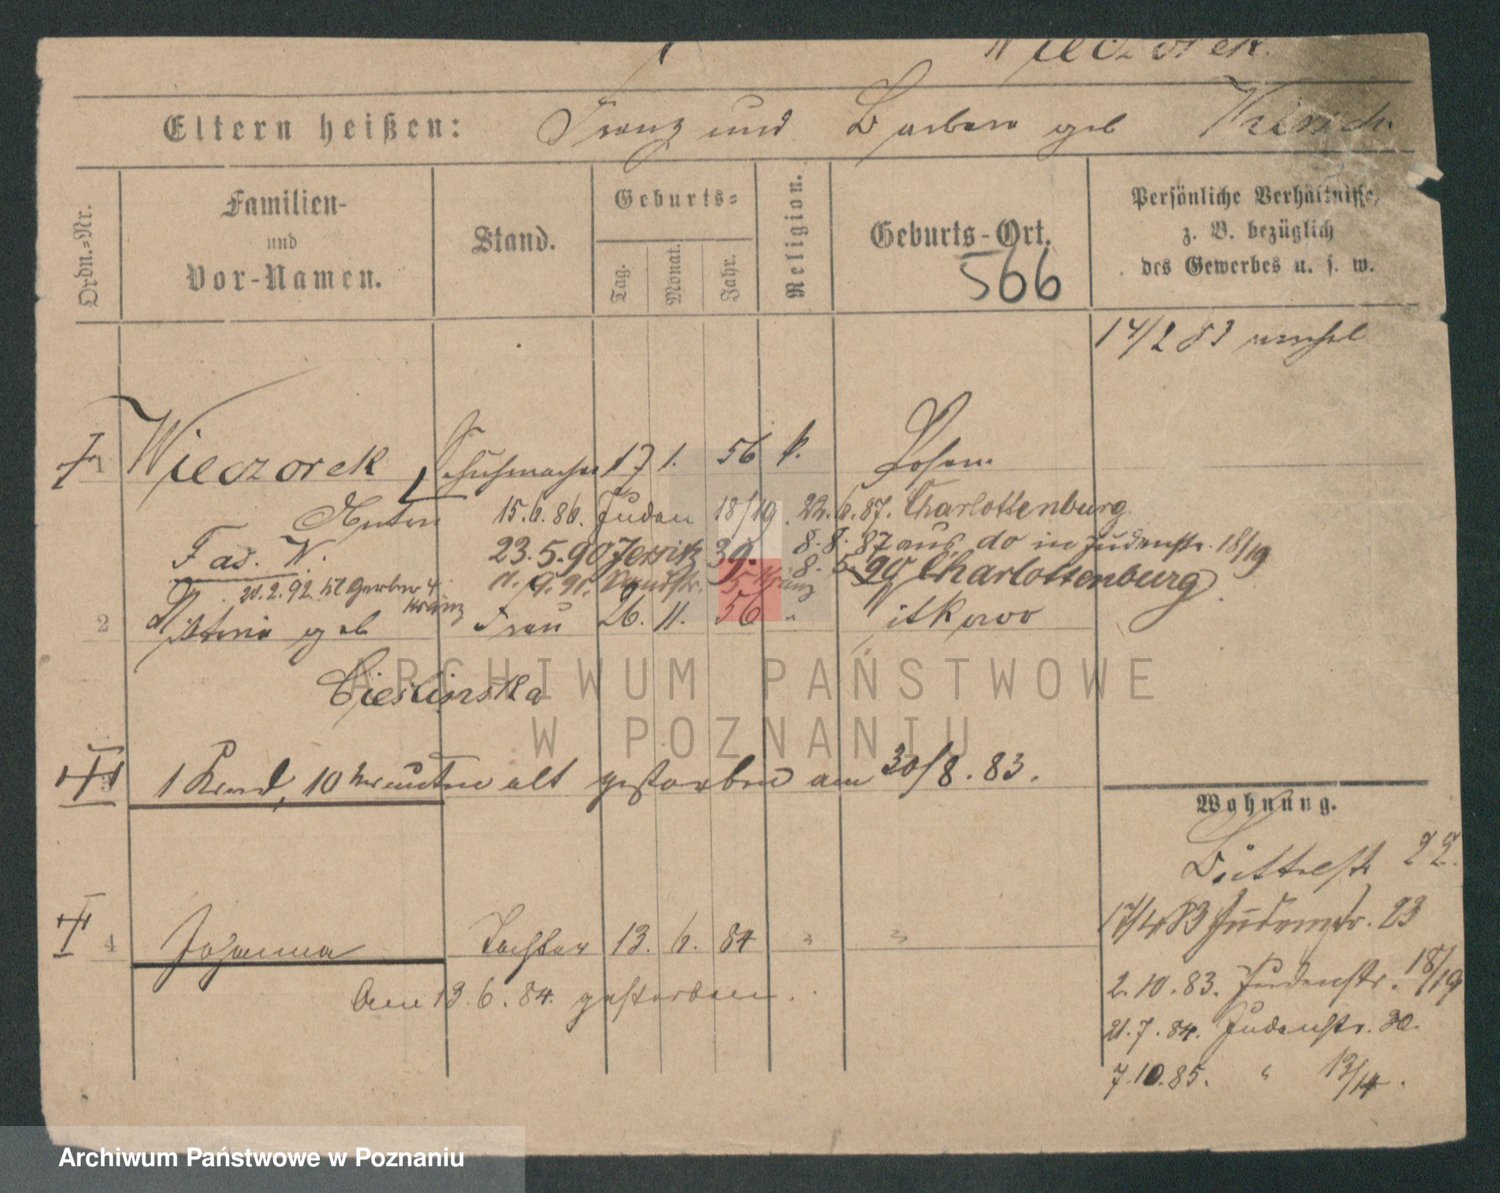 Wieczorek.
Eltern heißen: Franz und Barbara geb
Ordn.-Nr.
Familien- und Vor-Namen.
Stand.
Geburts-
Tag.
Monat.
Jahr.
Religion.
Geburts-Ort.
566
Persönliche Verhältnisse,
z. B. bezüglich
des Gewerbes u. s. w.
14/2 83
1 Wieczorek Schuhmacher 17 1. 56 k. Posen.
Anton 15.6.86. Juden 18/19. 22.6.87. Charlottenburg
Fad. W. 23.5.90 39. 8.8.87 aus do in Judenstr. 18/19
20.2.92 kl Gerber 4 8.5 90 Charlottenburg.
2 geb Frau 26. 11. 56 " Witkowo
Cieslinska
1 Kind, 10 Minuten alt gestorben am 30/8.83.
Wohnung.
22.
17/4 83 Judenstr. 23
4 Johanna Tochter 13. 6. 84 " "
Am 13.6.84. gestorben.
2.10.83. Judenstr. 18/19
21.7.84. Judenstr. 30.
7.10.85. " 13/14.
ARCHIWUM PAŃSTWOWE
W POZNANIU
Archiwum Państwowe w Poznaniu